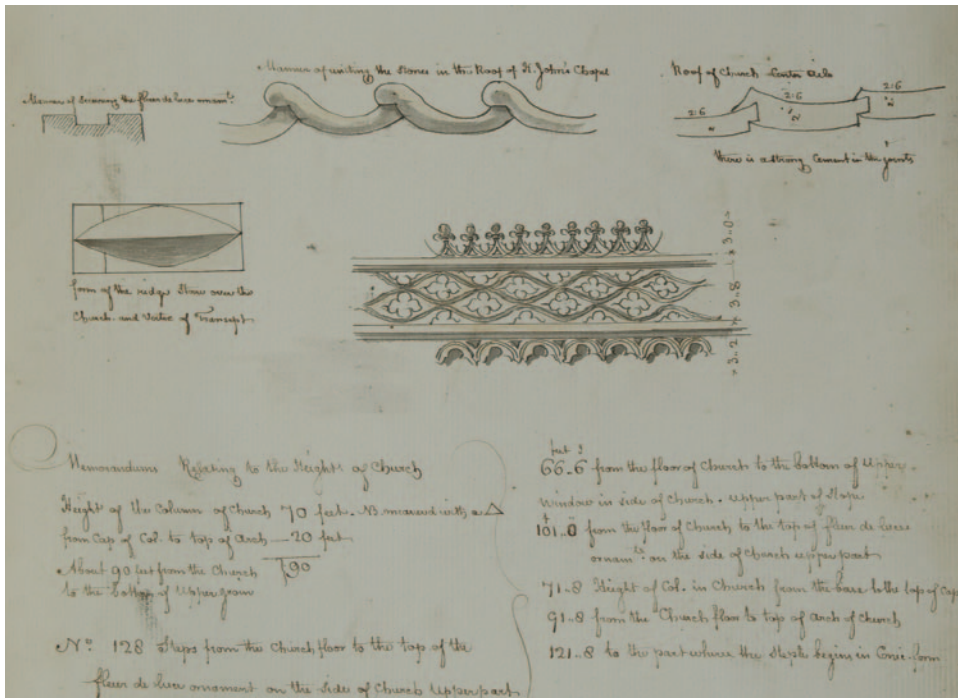 Manner of uniting the Stones in the Roof of St. John's Chapel
Roof of Church Center Aile
Manner of securing the fleur de luce ornamts.
2:6
2:6
2:6
2
2
2
there is a strong Cement in the joints
form of the ridge Stone over the
Church and Vertex of Transept
3..0
3..8
3..2
Memorandums Relating to the Heights of Church
Height of the Column of Church 70 feet. NB measured with a △
from Cap of Col. to top of Arch — 20 feet
About 90 feet from the Church 90
to the bottom of Upper groin
No. 128 Steps from the Church floor to the top of the
fleur de luce ornament on the sides of Church Upper part
feet
66..6 from the floor of Church to the bottom of Upper
Window in side of Church. upper part of Slope
101..0 from the floor of Church to the top of fleur de luce
ornamts. on the side of Church upper part
71-8 Height of Col. in Church from the base to the top of Cap
91-8 from the Church floor to top of Arch of Church
121..8 to the part where the Steple begins in Conic form